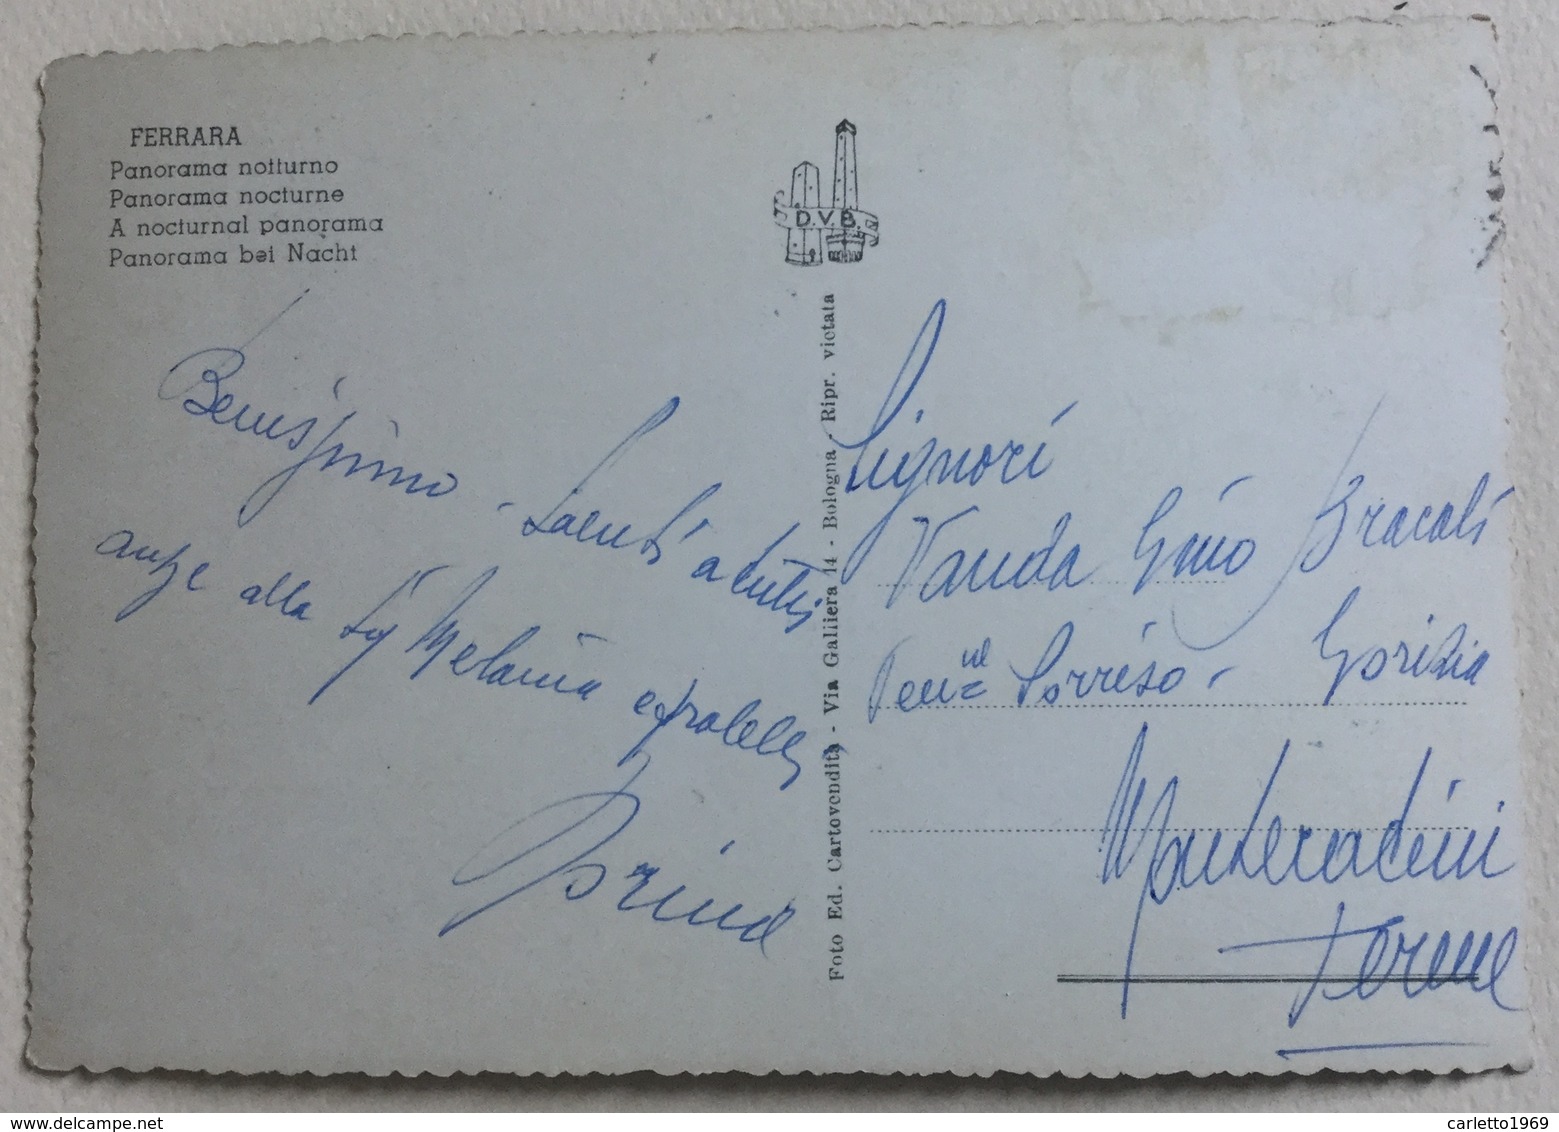 FERRARA
Panorama notturno
Panorama nocturne
A nocturnal panorama
Panorama bei Nacht
D.V.B.
Foto Ed. Cartovendita - Via Galliera 14 - Bologna - Ripr. vietata
Benissimo - Saluti a tutti
anche alla Sig Melania e fratelli
Signori
Vanda Gino Bracali
Penne Sorriso - Gorizia
Montecatini
Terme
www.delcampe.net
carletto1969